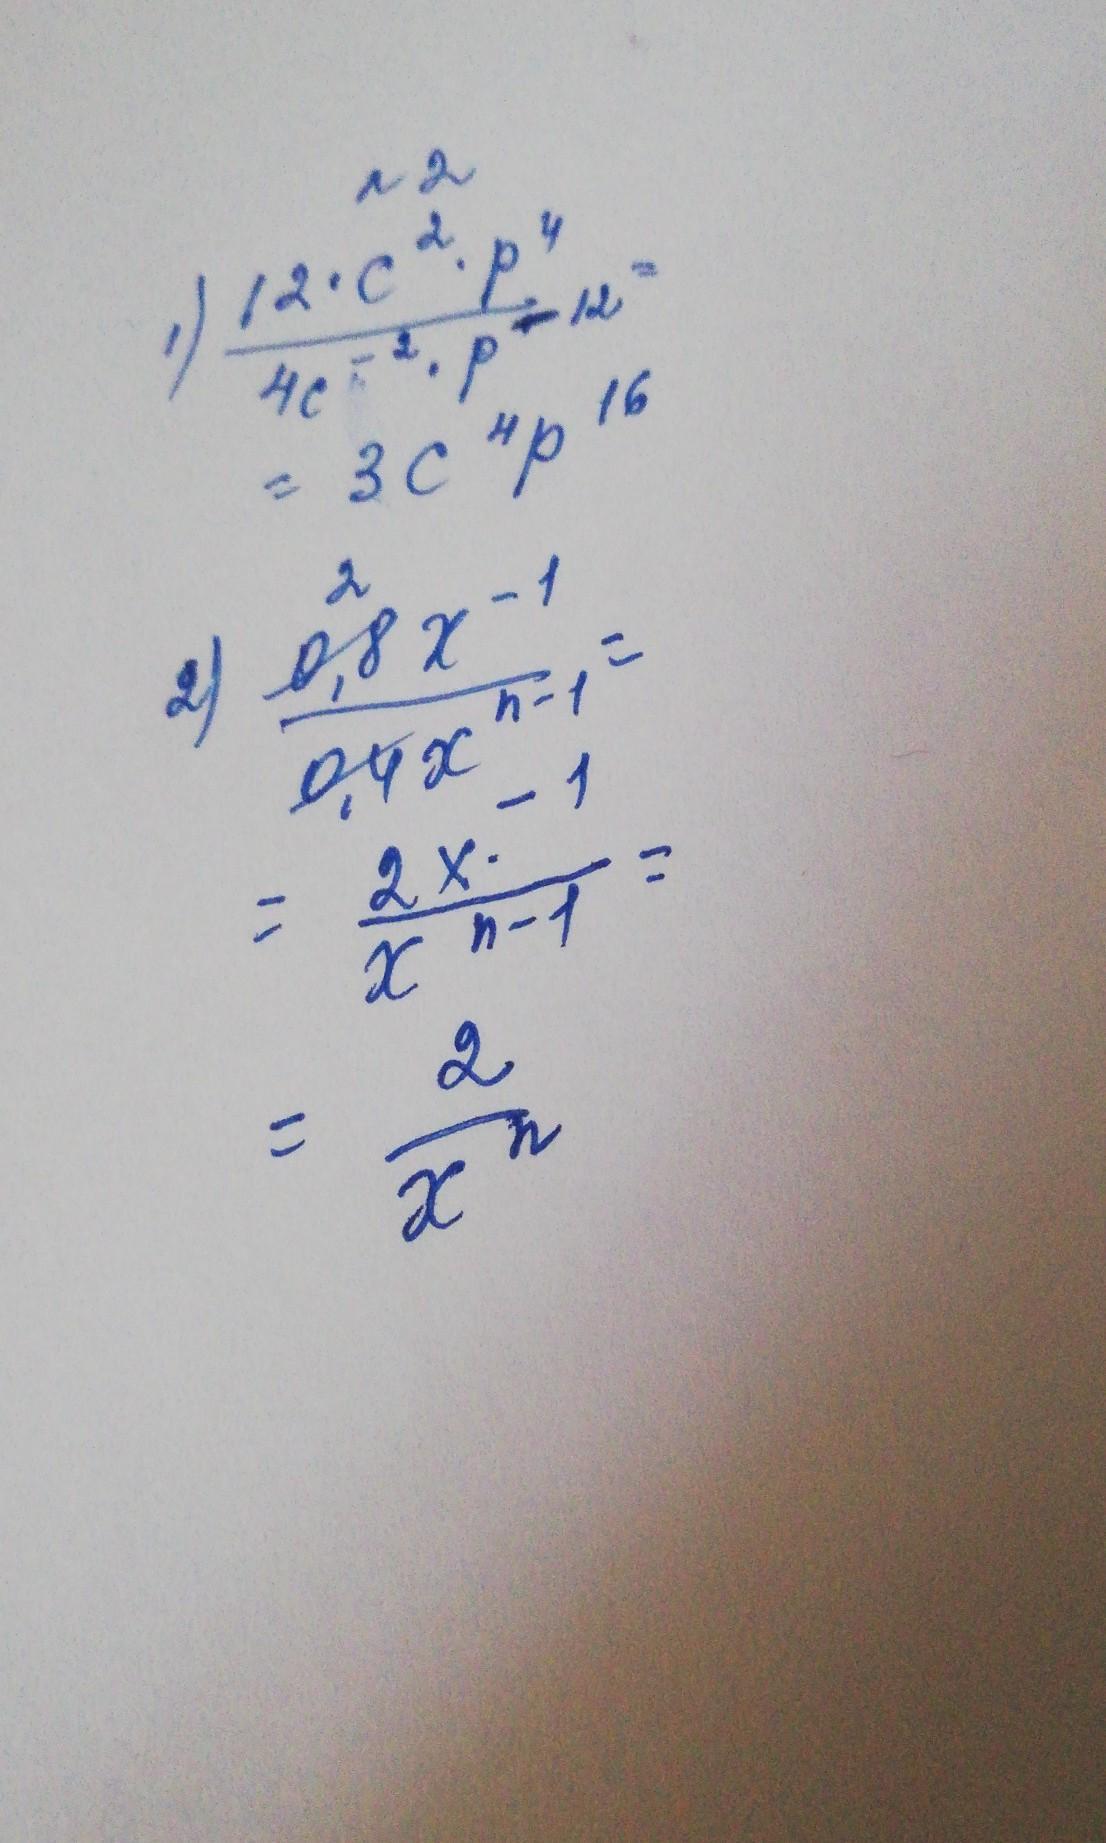 № 2
1) 12 · c² · p⁴ =
4c⁻² · p⁻¹²
= 3c⁴p¹⁶
2
2) 0,8x⁻¹ =
0,4xⁿ⁻¹
= 2x·⁻¹ =
xⁿ⁻¹
= 2
xⁿ